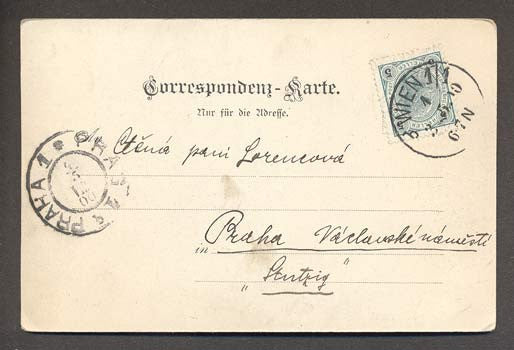 Correspondenz-Karte.
Nur für die Adresse.
WIEN 1/1
6-7N
PRAHA 1 PRAGA
Ctěná paní Lorencová
Praha Václavské náměstí